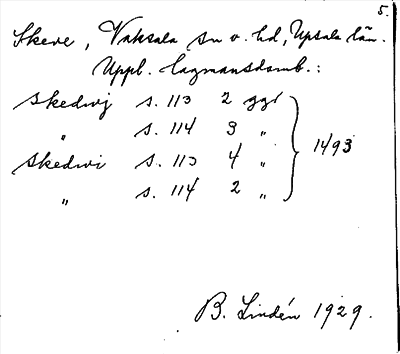 5.
Skeve, Vaksala sn o. hd, Upsala län.
Uppl. lagmansdomb.:
Skedwj s. 113 2 ggr
„ s. 114 3 „
Skedwi s. 113 4 „ 1493
„ s. 114 2 „
B. Lindén 1929.